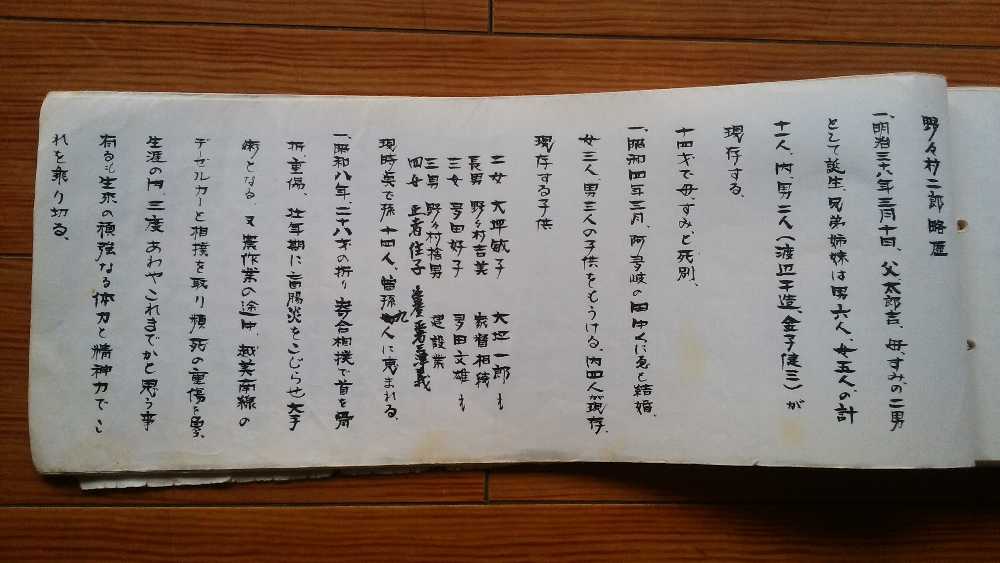 野々村二郎 略歴
一、明治三十八年三月十日、父太郎吉、母、すみの二男
として誕生、兄弟姉妹は男六人、女五人、の計
十一人、内、男二人(渡辺千造、金子健三)が
現存する。
十四才で母、すみと死別、
一、昭和四年三月、阿多岐の田中くに急と結婚、
女三人、男三人の子供をもうける、内四人が現存、
現存する子供
二女 大坪敏子 大坪一郎
長男 野々村吉美 家督相続
三女 多田好子 多田文雄
三男 野々村 男 建設業
四女 正者住子
現時点で孫、十四人、曽孫九人に恵まれる。
一、昭和八年、二十八才の折り 寄合相撲で首を骨
折、重傷、壮年期に盲腸炎をこじらせ大手
術となる、又農作業の途中、越美南線の
デーゼルカーと相撲を取り瀕死の重傷を負う、
生涯の内、三度、あわやこれまでかと思う事
有るも生来の頑強なる体力と精神力でこ
れを乗り切る、